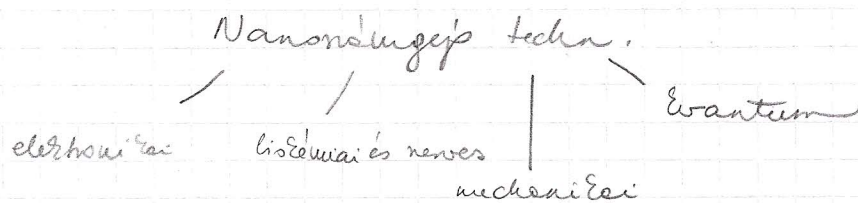 Nanoszámgép techn.
elektronikai
biokémiai és szerves
mechanikai
kvantum